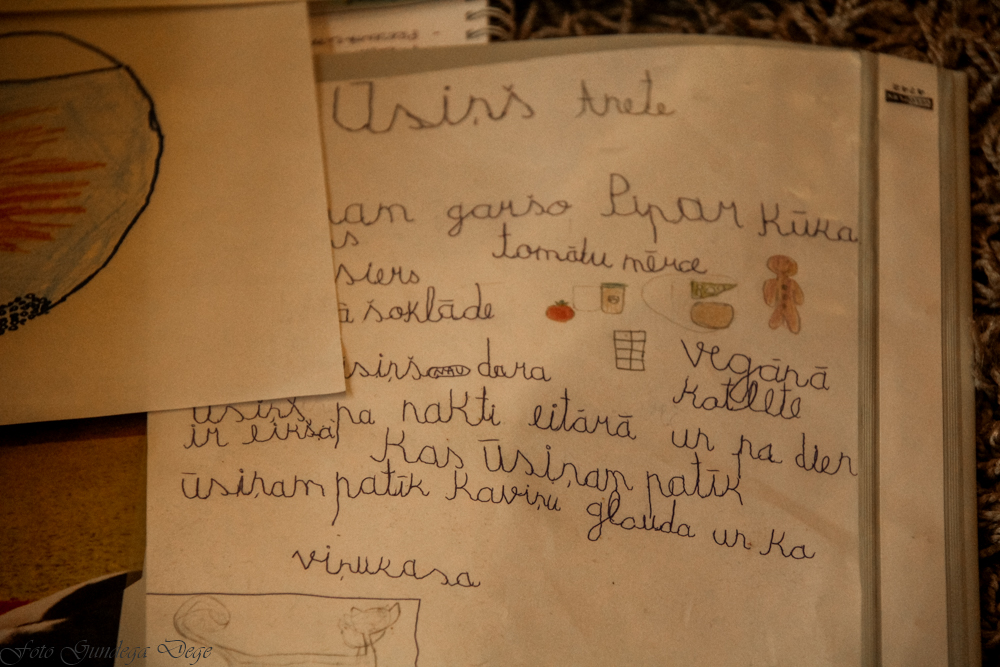 Ūsiņš Anete
garšo Pipar Kūka
tomātu mērce
siers
šoklāde
vegāņā
dara
katlete
ūsiņš pa naktī eitārā un pa dien
ir eikšā
Kas Ūsiņam patīk
ūsiņam patīk Kaviņu glauda un ka
viņukasa
Foto Gundega Dege